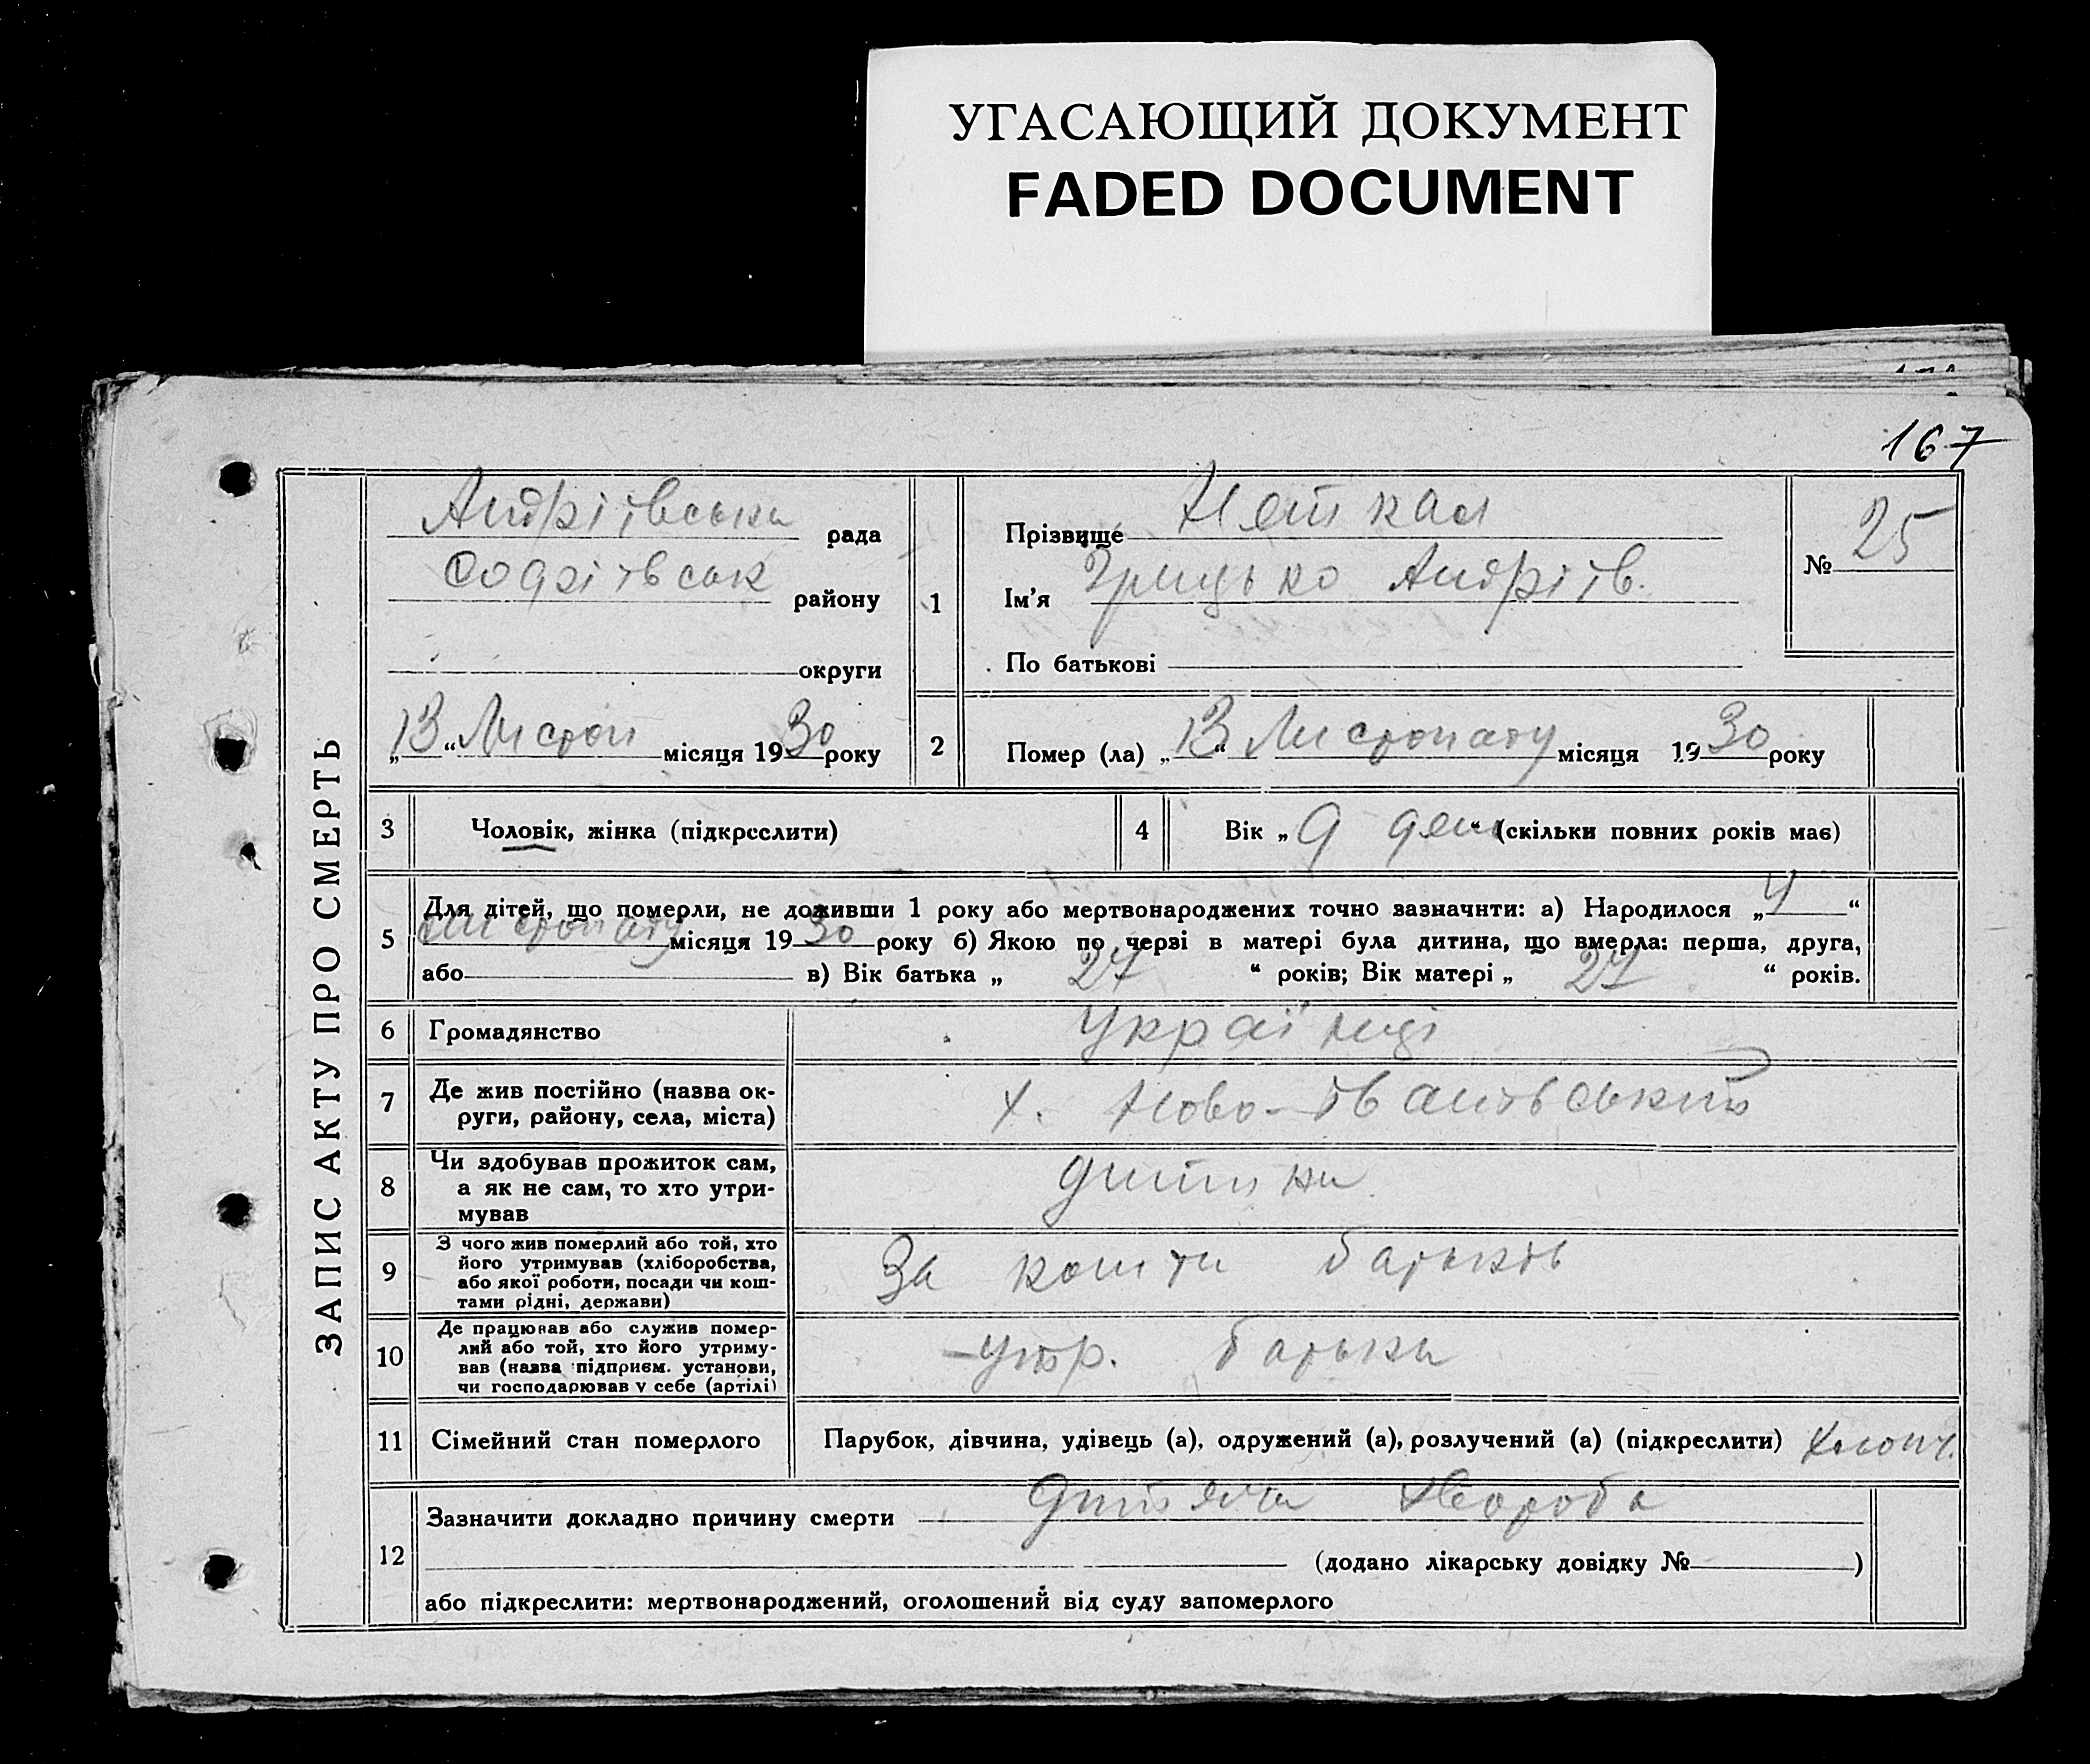 УГАСАЮЩИЙ ДОКУМЕНТ
FADED DOCUMENT
167
ЗАПИС АКТУ ПРО СМЕРТЬ
Андріївська рада
Софіївськ району
округи
„13“ Листоп місяця 1930 року
1
Прізвище
Ім’я Грицько Андріїв.
По батькові
№ 25
2 Помер (ла) „13“ Листопаду місяця 1930 року
3 Чоловік, жінка (підкреслити)
4 Вік „9 ден“ (скільки повних років має)
5 Для дітей, що померли, не доживши 1 року або мертвонароджених точно зазначити: а) Народилося „4“
листопаду місяця 1930 року б) Якою по черзі в матері була дитина, що вмерла: перша, друга,
або в) Вік батька „27“ років; Вік матері „27“ років.
6 Громадянство Українці
7 Де жив постійно (назва ок-
руги, району, села, міста)
х. Ново-Іванівський
8 Чи здобував прожиток сам,
а як не сам, то хто утри-
мував
дитина
9 З чого жив померлий або той, хто
його утримував (хліборобства,
або якої роботи, посади чи кош-
тами рідні, держави)
За кошти батьків
10 Де працював або служив помер-
лий або той, хто його утриму-
вав (назва підприєм. установи,
чи господарював у себе (артілі)
утр. батьки
11 Сімейний стан померлого Парубок, дівчина, удівець (а), одружений (а), розлучений (а) (підкреслити) хлопч.
12 Зазначити докладно причину смерти Дитяча хвороба
(додано лікарську довідку № )
або підкреслити: мертвонароджений, оголошений від суду запомерлого